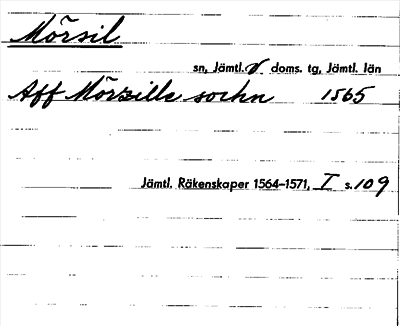 Mörsil
sn, Jämtl. v doms. tg, Jämtl. län
Aff Mörzills sochn 1565
Jämtl. Räkenskaper 1564–1571, I s. 109